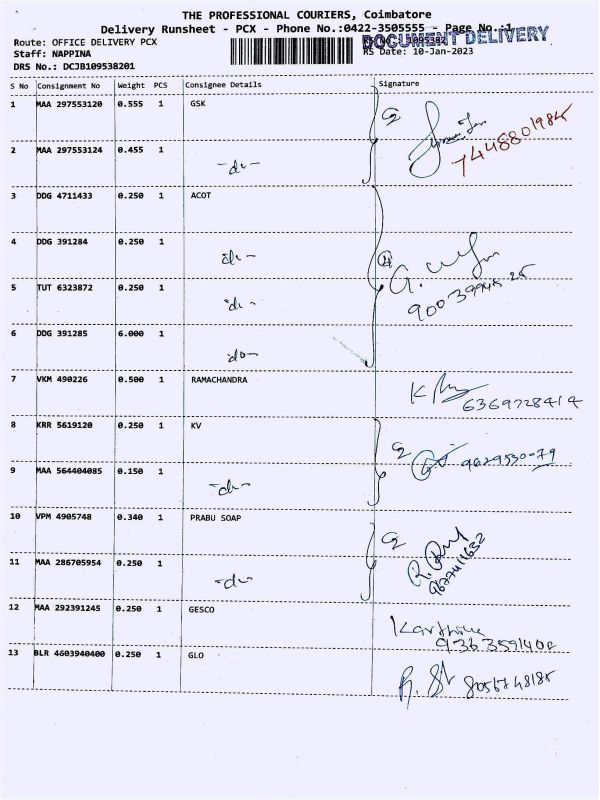 THE PROFESSIONAL COURIERS, Coimbatore
Delivery Runsheet - PCX - Phone No.:0422-3505555 - Page No.:1
DOCUMENT DELIVERY
Route: OFFICE DELIVERY PCX
Staff: NAPPINA
RS Date: 10-Jan-2023
DRS No.: DCJB109538201
S No Consignment No Weight PCS Consignee Details Signature
1 MAA 297553120 0.555 1 GSK
7448801985
2 MAA 297553124 0.455 1 -do-
3 DDG 4711433 0.250 1 ACOT
4 DDG 391284 0.250 1 -do-
5 TUT 6323872 0.250 1 -do-
6 DDG 391285 6.000 1 -do-
7 VKM 490226 0.500 1 RAMACHANDRA
6369728414
8 KRR 5619120 0.250 1 KV
9629530079
9 MAA 564404085 0.150 1 -do-
10 VPM 4905748 0.340 1 PRABU SOAP
11 MAA 286705954 0.250 1 -do-
12 MAA 292391245 0.250 1 GESCO
13 BLR 4603940400 0.250 1 GLO
8056748185